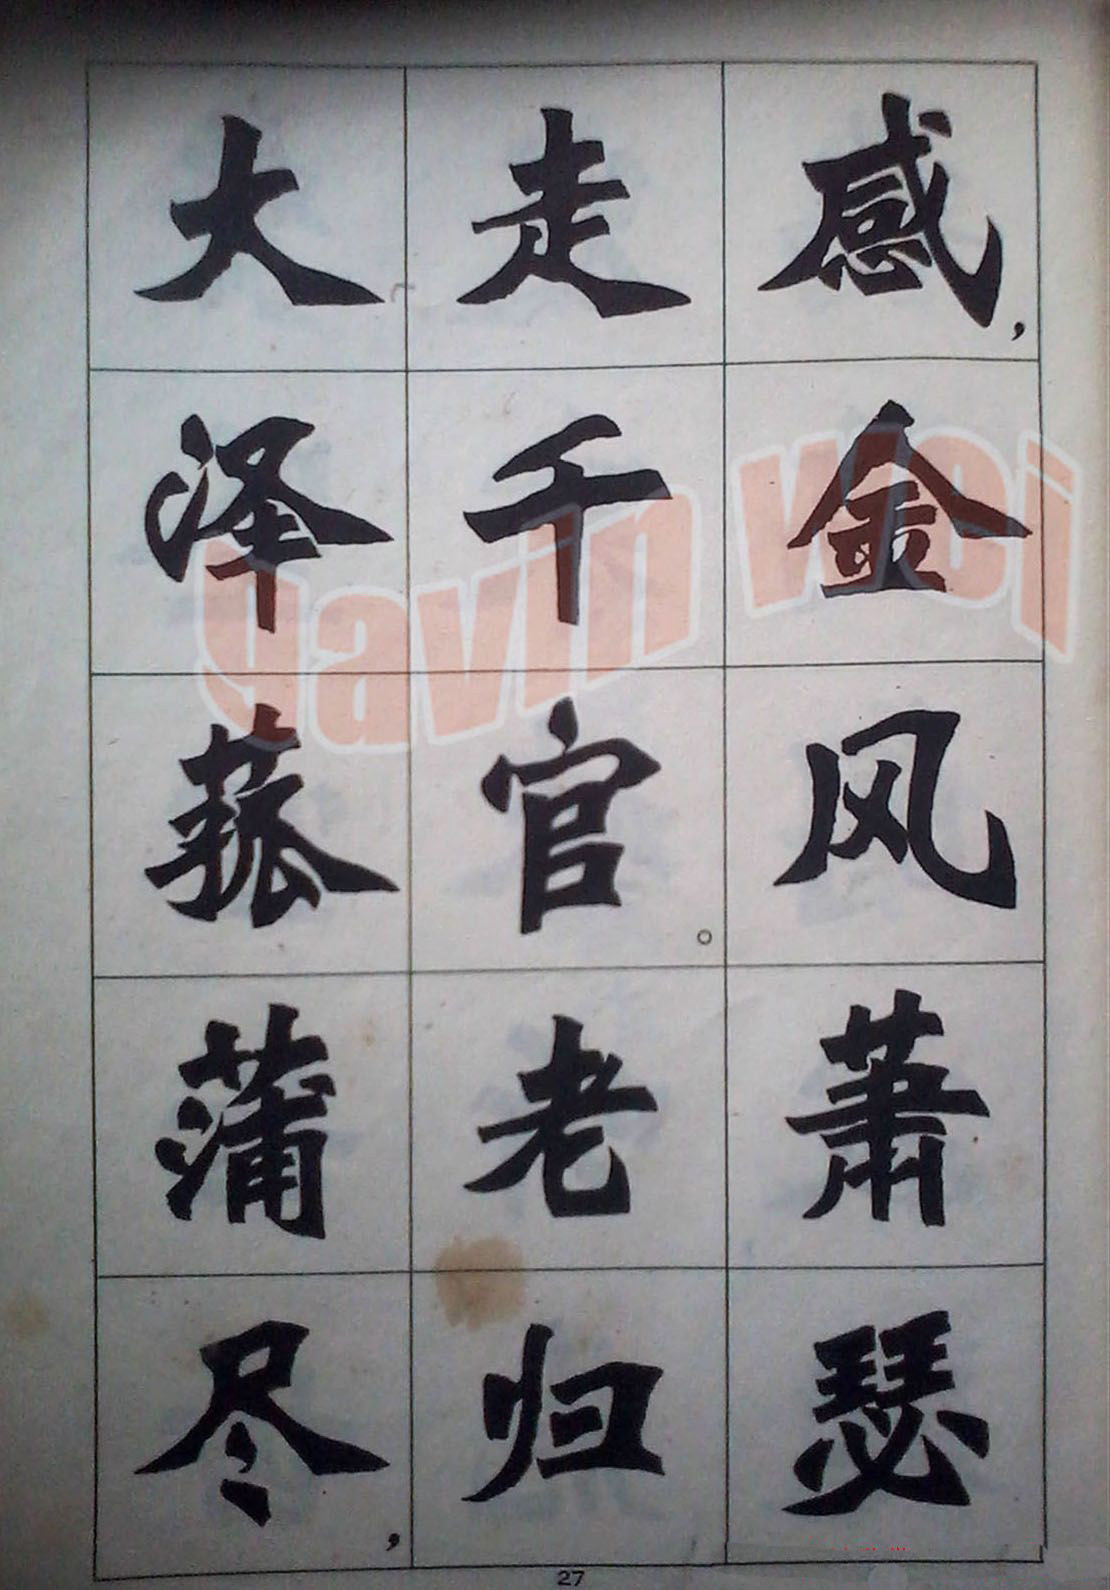 感，金风萧瑟
走千官。老归
大泽菰蒲尽，
27
gavin wei